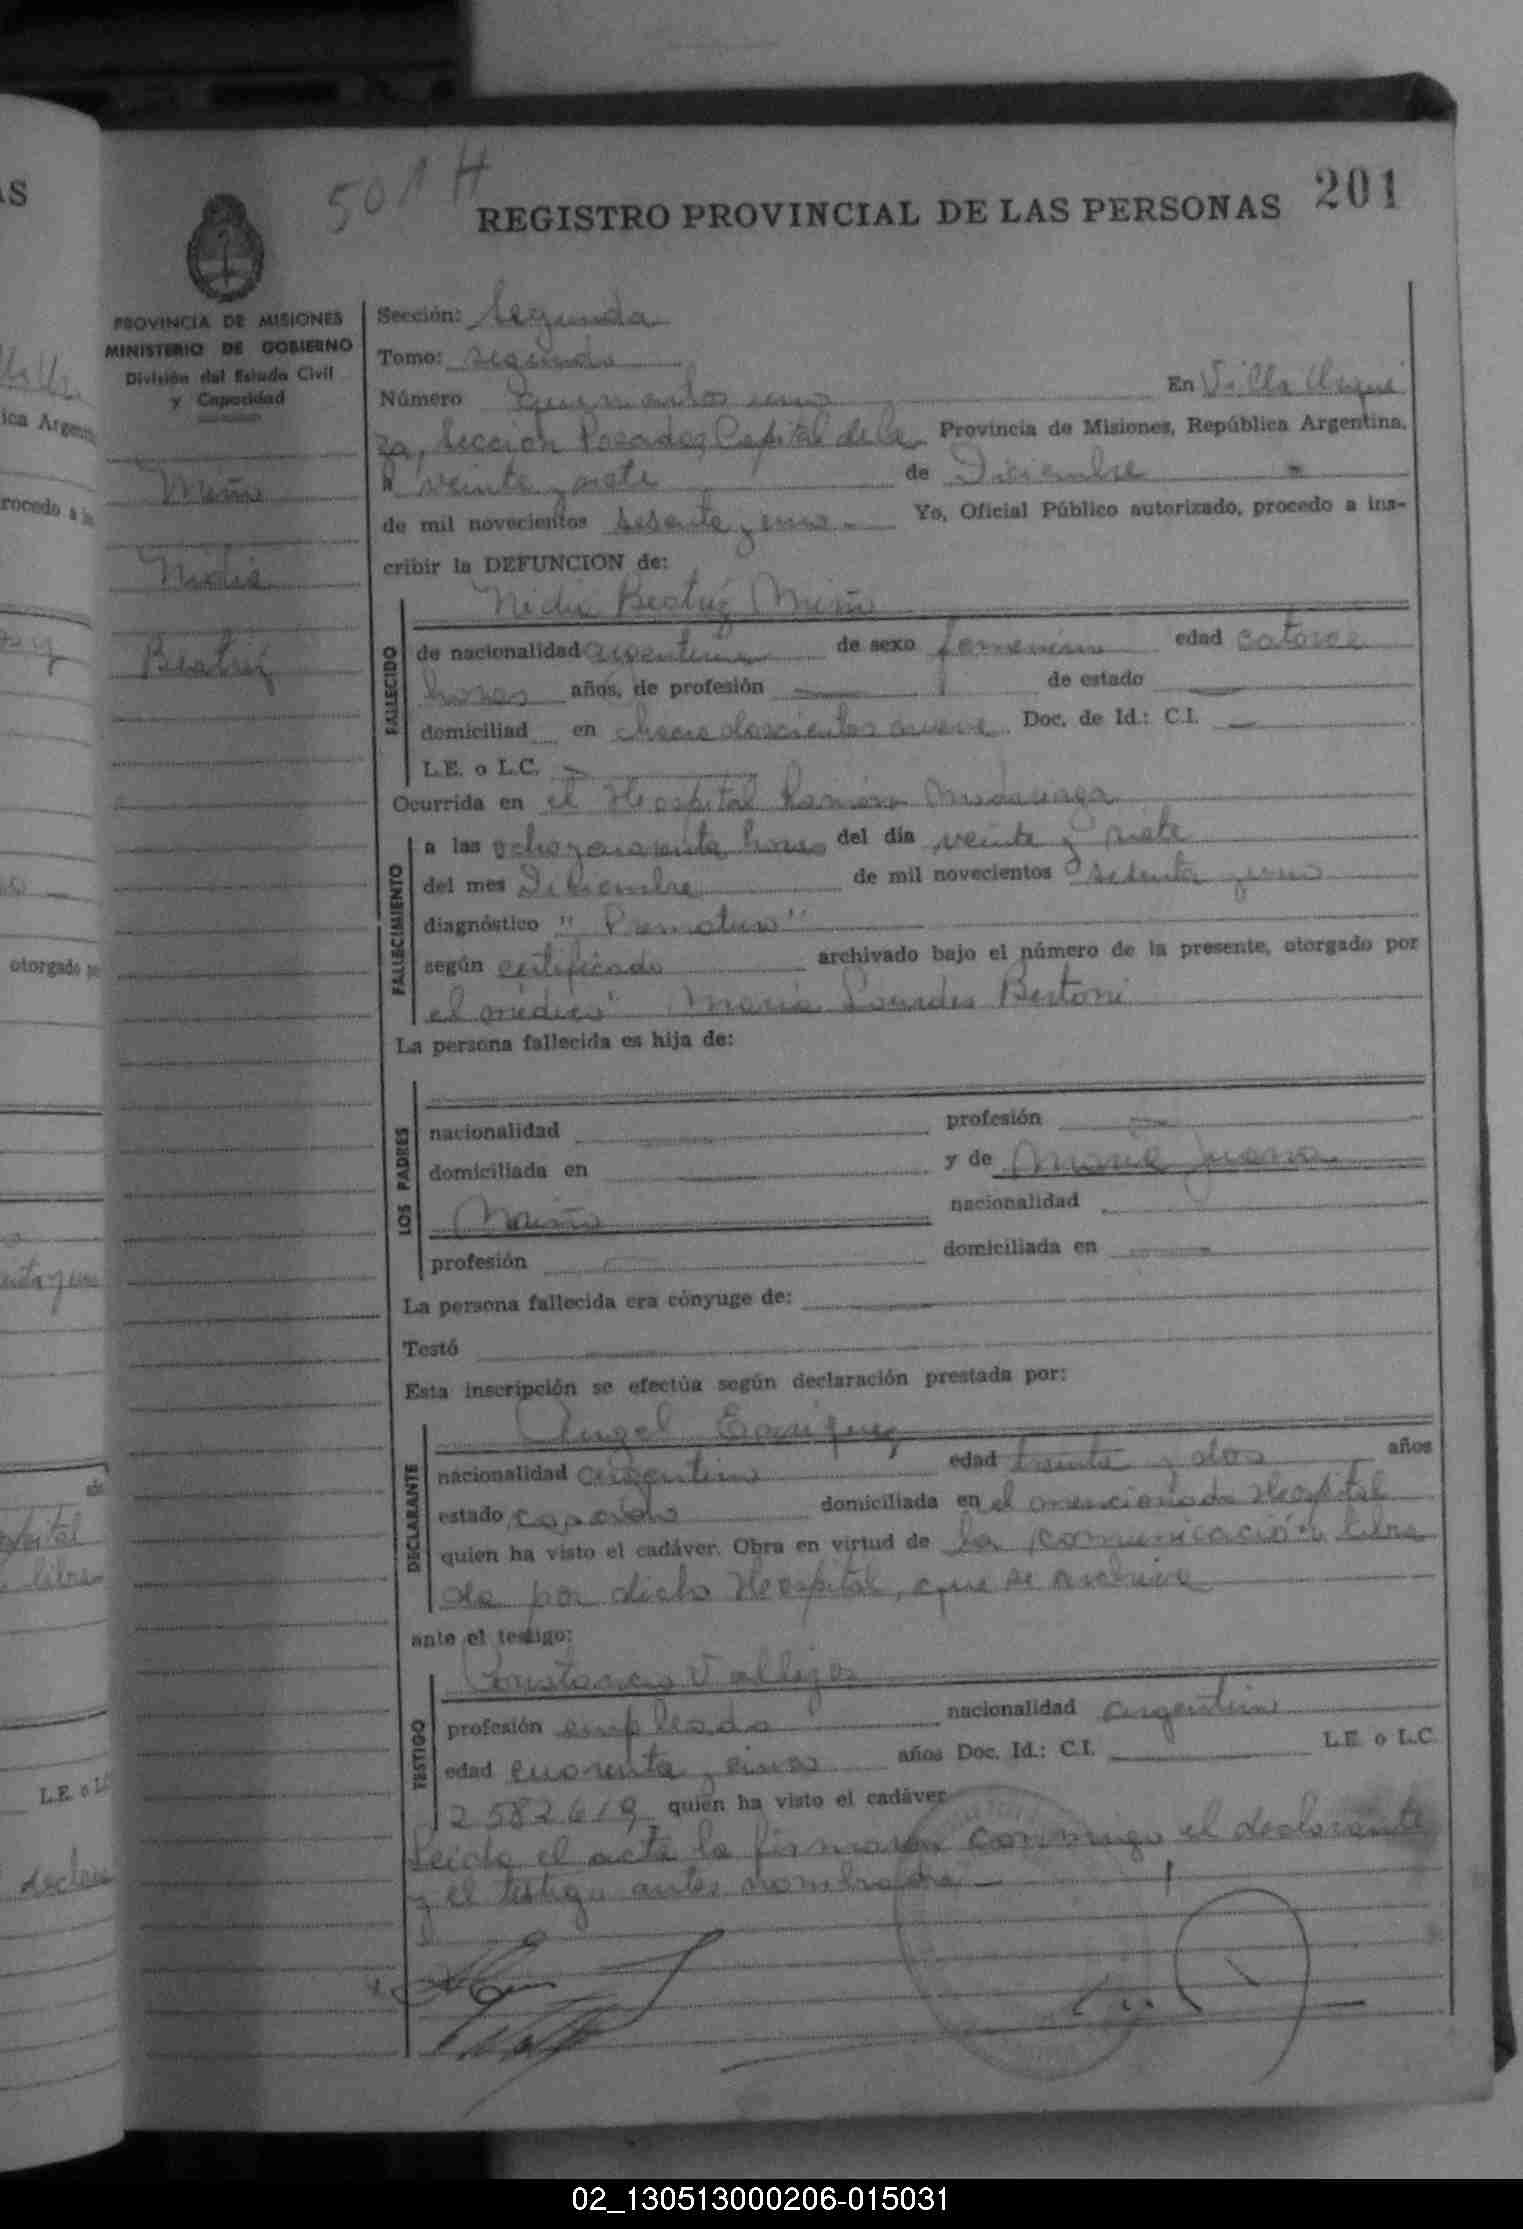 501 H
REGISTRO PROVINCIAL DE LAS PERSONAS 201
PROVINCIA DE MISIONES
MINISTERIO DE GOBIERNO
División del Estado Civil
y Capacidad
Miño
Nidia
Beatriz
Sección: Segunda
Tomo: segundo
Número Quinientos uno En Villa Urqui
za, Sección Posadas, Capital de la Provincia de Misiones, República Argentina,
a veinte y siete de Diciembre
de mil novecientos sesenta y uno Yo, Oficial Público autorizado, procedo a ins-
cribir la DEFUNCION de:
Nidia Beatriz Miño
FALLECIDO
de nacionalidad argentina de sexo femenino edad catorce
horas años, de profesión — de estado —
domiciliad en chacra doscientos nueve Doc. de Id.: C.I. —
L.E. o L.C. —
Ocurrida en el Hospital Ramón Madariaga
FALLECIMIENTO
a las ocho y cuarenta horas del día veinte y siete
del mes Diciembre de mil novecientos sesenta y uno
diagnóstico "Prematuro"
según certificado archivado bajo el número de la presente, otorgado por
el médico María Lourdes Bertoni
La persona fallecida es hija de:
LOS PADRES
nacionalidad profesión —
domiciliada en y de María Juana
Miño nacionalidad
profesión — domiciliada en —
La persona fallecida era cónyuge de:
Testó
Esta inscripción se efectúa según declaración prestada por:
DECLARANTE
Angel Enriquez
nacionalidad argentino edad treinta y dos años
estado casado domiciliada en el mencionado Hospital
quien ha visto el cadáver. Obra en virtud de la comunicación libra
da por dicho Hospital, que se archiva
ante el testigo:
TESTIGO
Constancio Vallejos
profesión empleado nacionalidad argentino
edad cuarenta y cinco años Doc. Id.: C.I. — L.E. o L.C.
2582619 quien ha visto el cadáver
Leída el acta la firmaron conmigo el declarante
y el testigo antes nombrados —
02_130513000206-015031